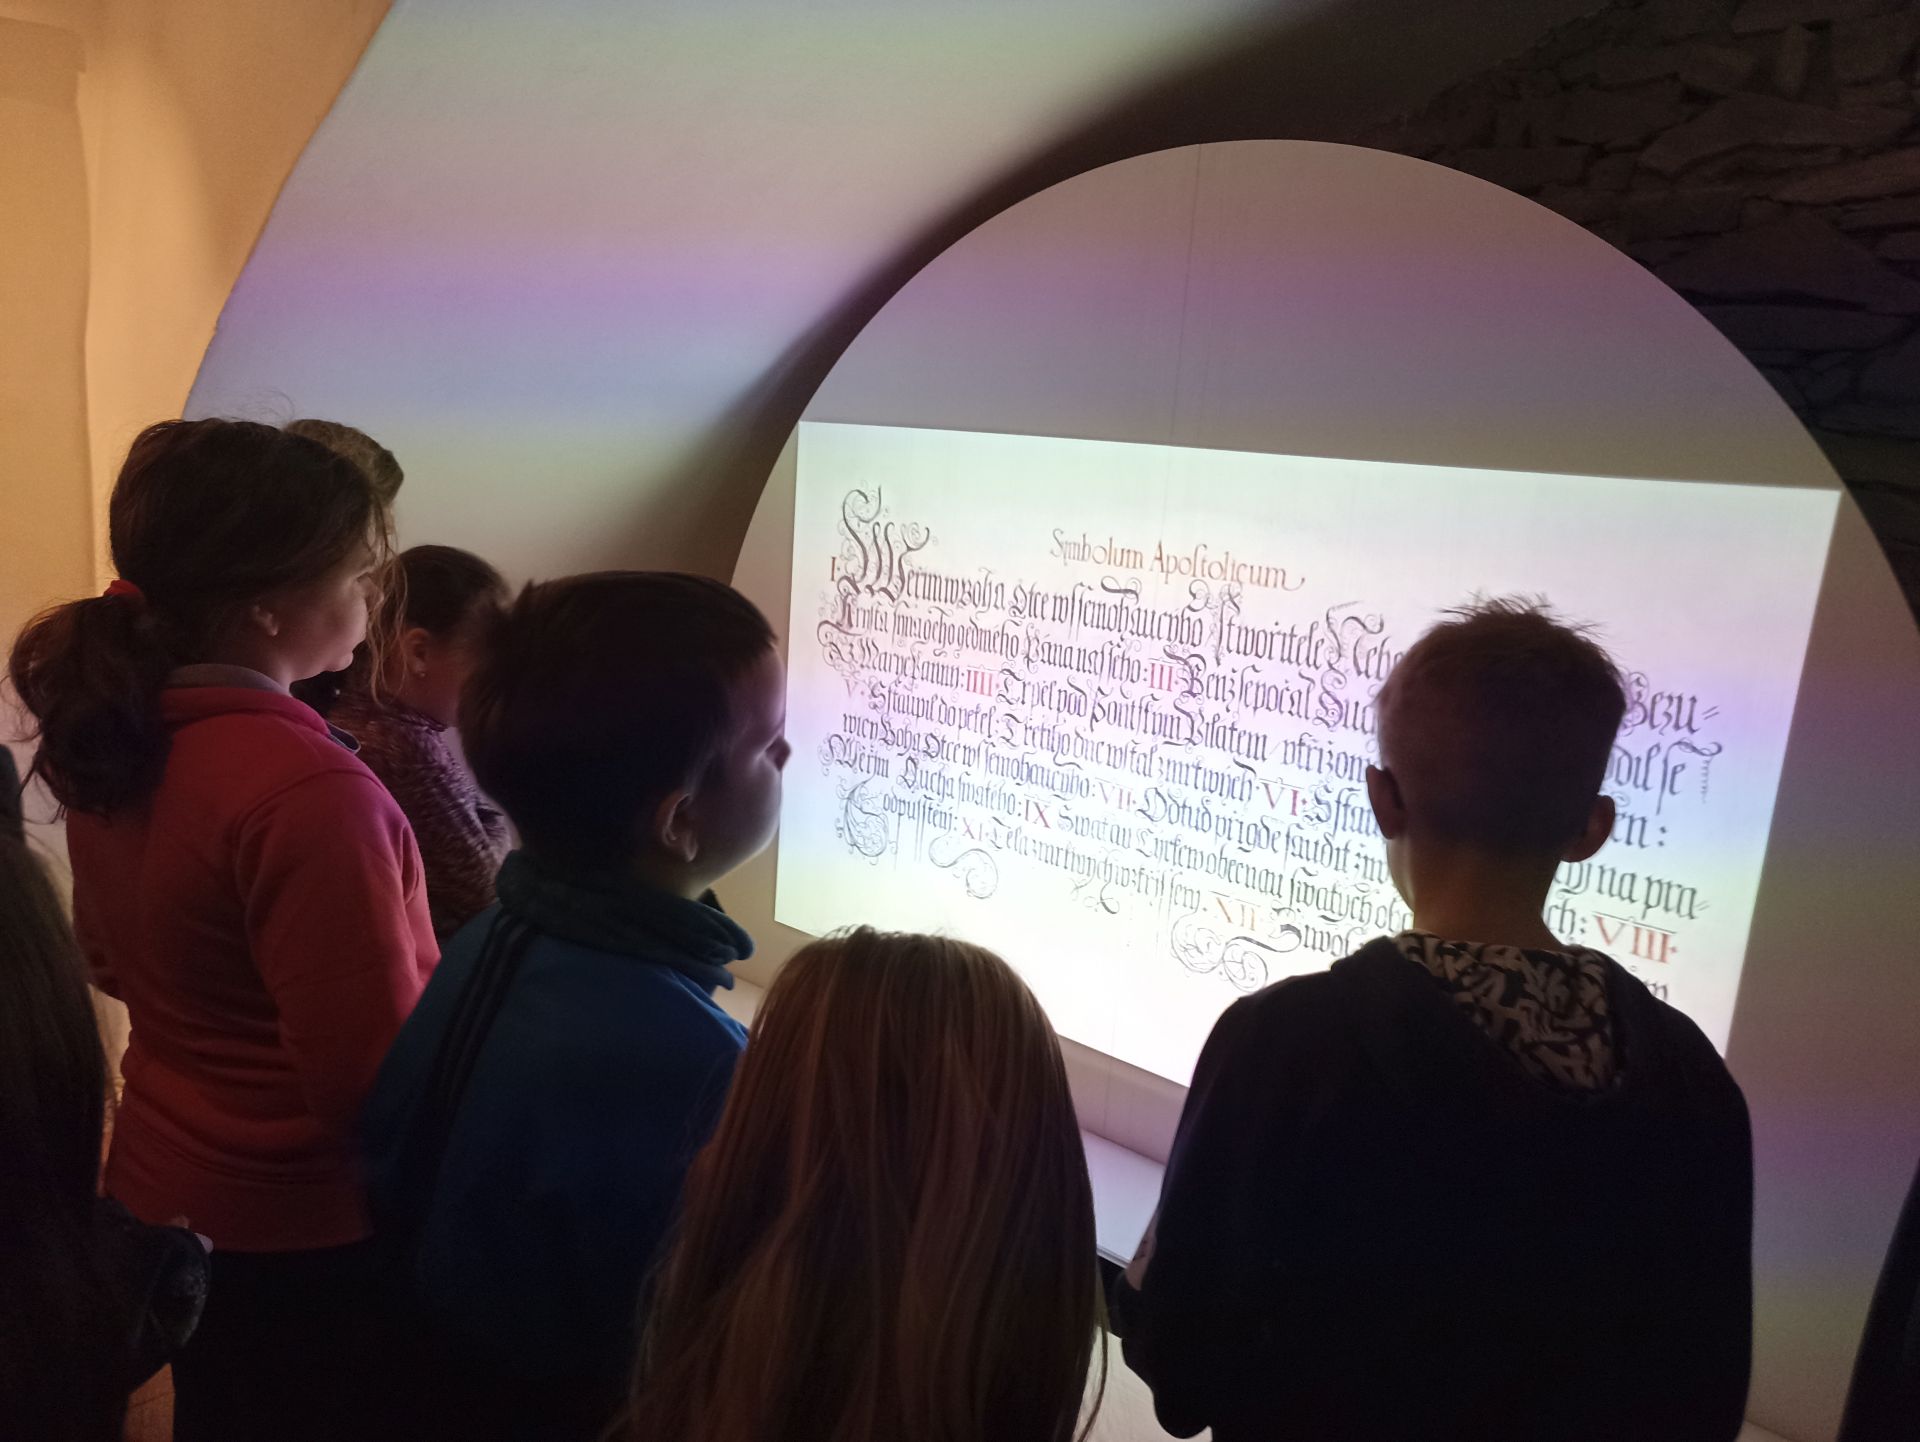 Symbolum Apoſtolicum
I. Wěřjm w Boha Otce wſſemohaucyho Stwořitele Nebe Gezu⸗
Kryſta ſyna geho gedineho Pána naſſeho: III. Genž ſe počal Duch odil ſe
Z Marye Panny: IIII. Trpěl pod Pontſkym Pilatem / vkřižow en:
V. Sſtaupil do pekel: Třetiho dne wſtal z mrtwých VI: Sſtau na pra⸗
wicy Boha Otce wſſemohaucyho: VII. Odtud přigde ſaudit žiw ch: VIII.
Wěřjm Ducha ſwateho: IX Swatau Cyrkew obecnau ſwatých obc
odpuſſtěnj: XI. Těla z mrtwých wzkřjſſenj. XII. Ziwot